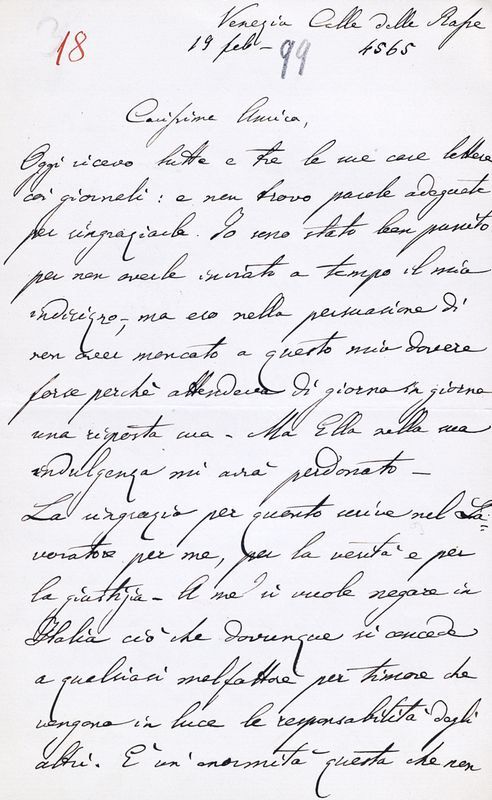 Venezia Calle delle Rasse
19 feb – 99 4565
18
Carissimo Amico,
Oggi ricevo tutte e tre le sue care lettere
coi giornali: e non trovo parole adeguate
per ringraziarla. Io sono stato ben punito
per non averle inviato a tempo il mio
indirizzo, ma ero nella persuasione di
non aver mancato a questo mio dovere
forse perchè attendeva di giorno in giorno
una risposta sua – Ma Ella nella sua
indulgenza mi avrà perdonato –
La ringrazio per quanto scrive nel La=
voratore per me, per la verità e per
la giustizia – A me si vuole negare in
Italia ciò che dovunque si concede
a qualsiasi malfattore per timore che
vengano in luce le responsabilità degli
altri. È un'enormità questa che non